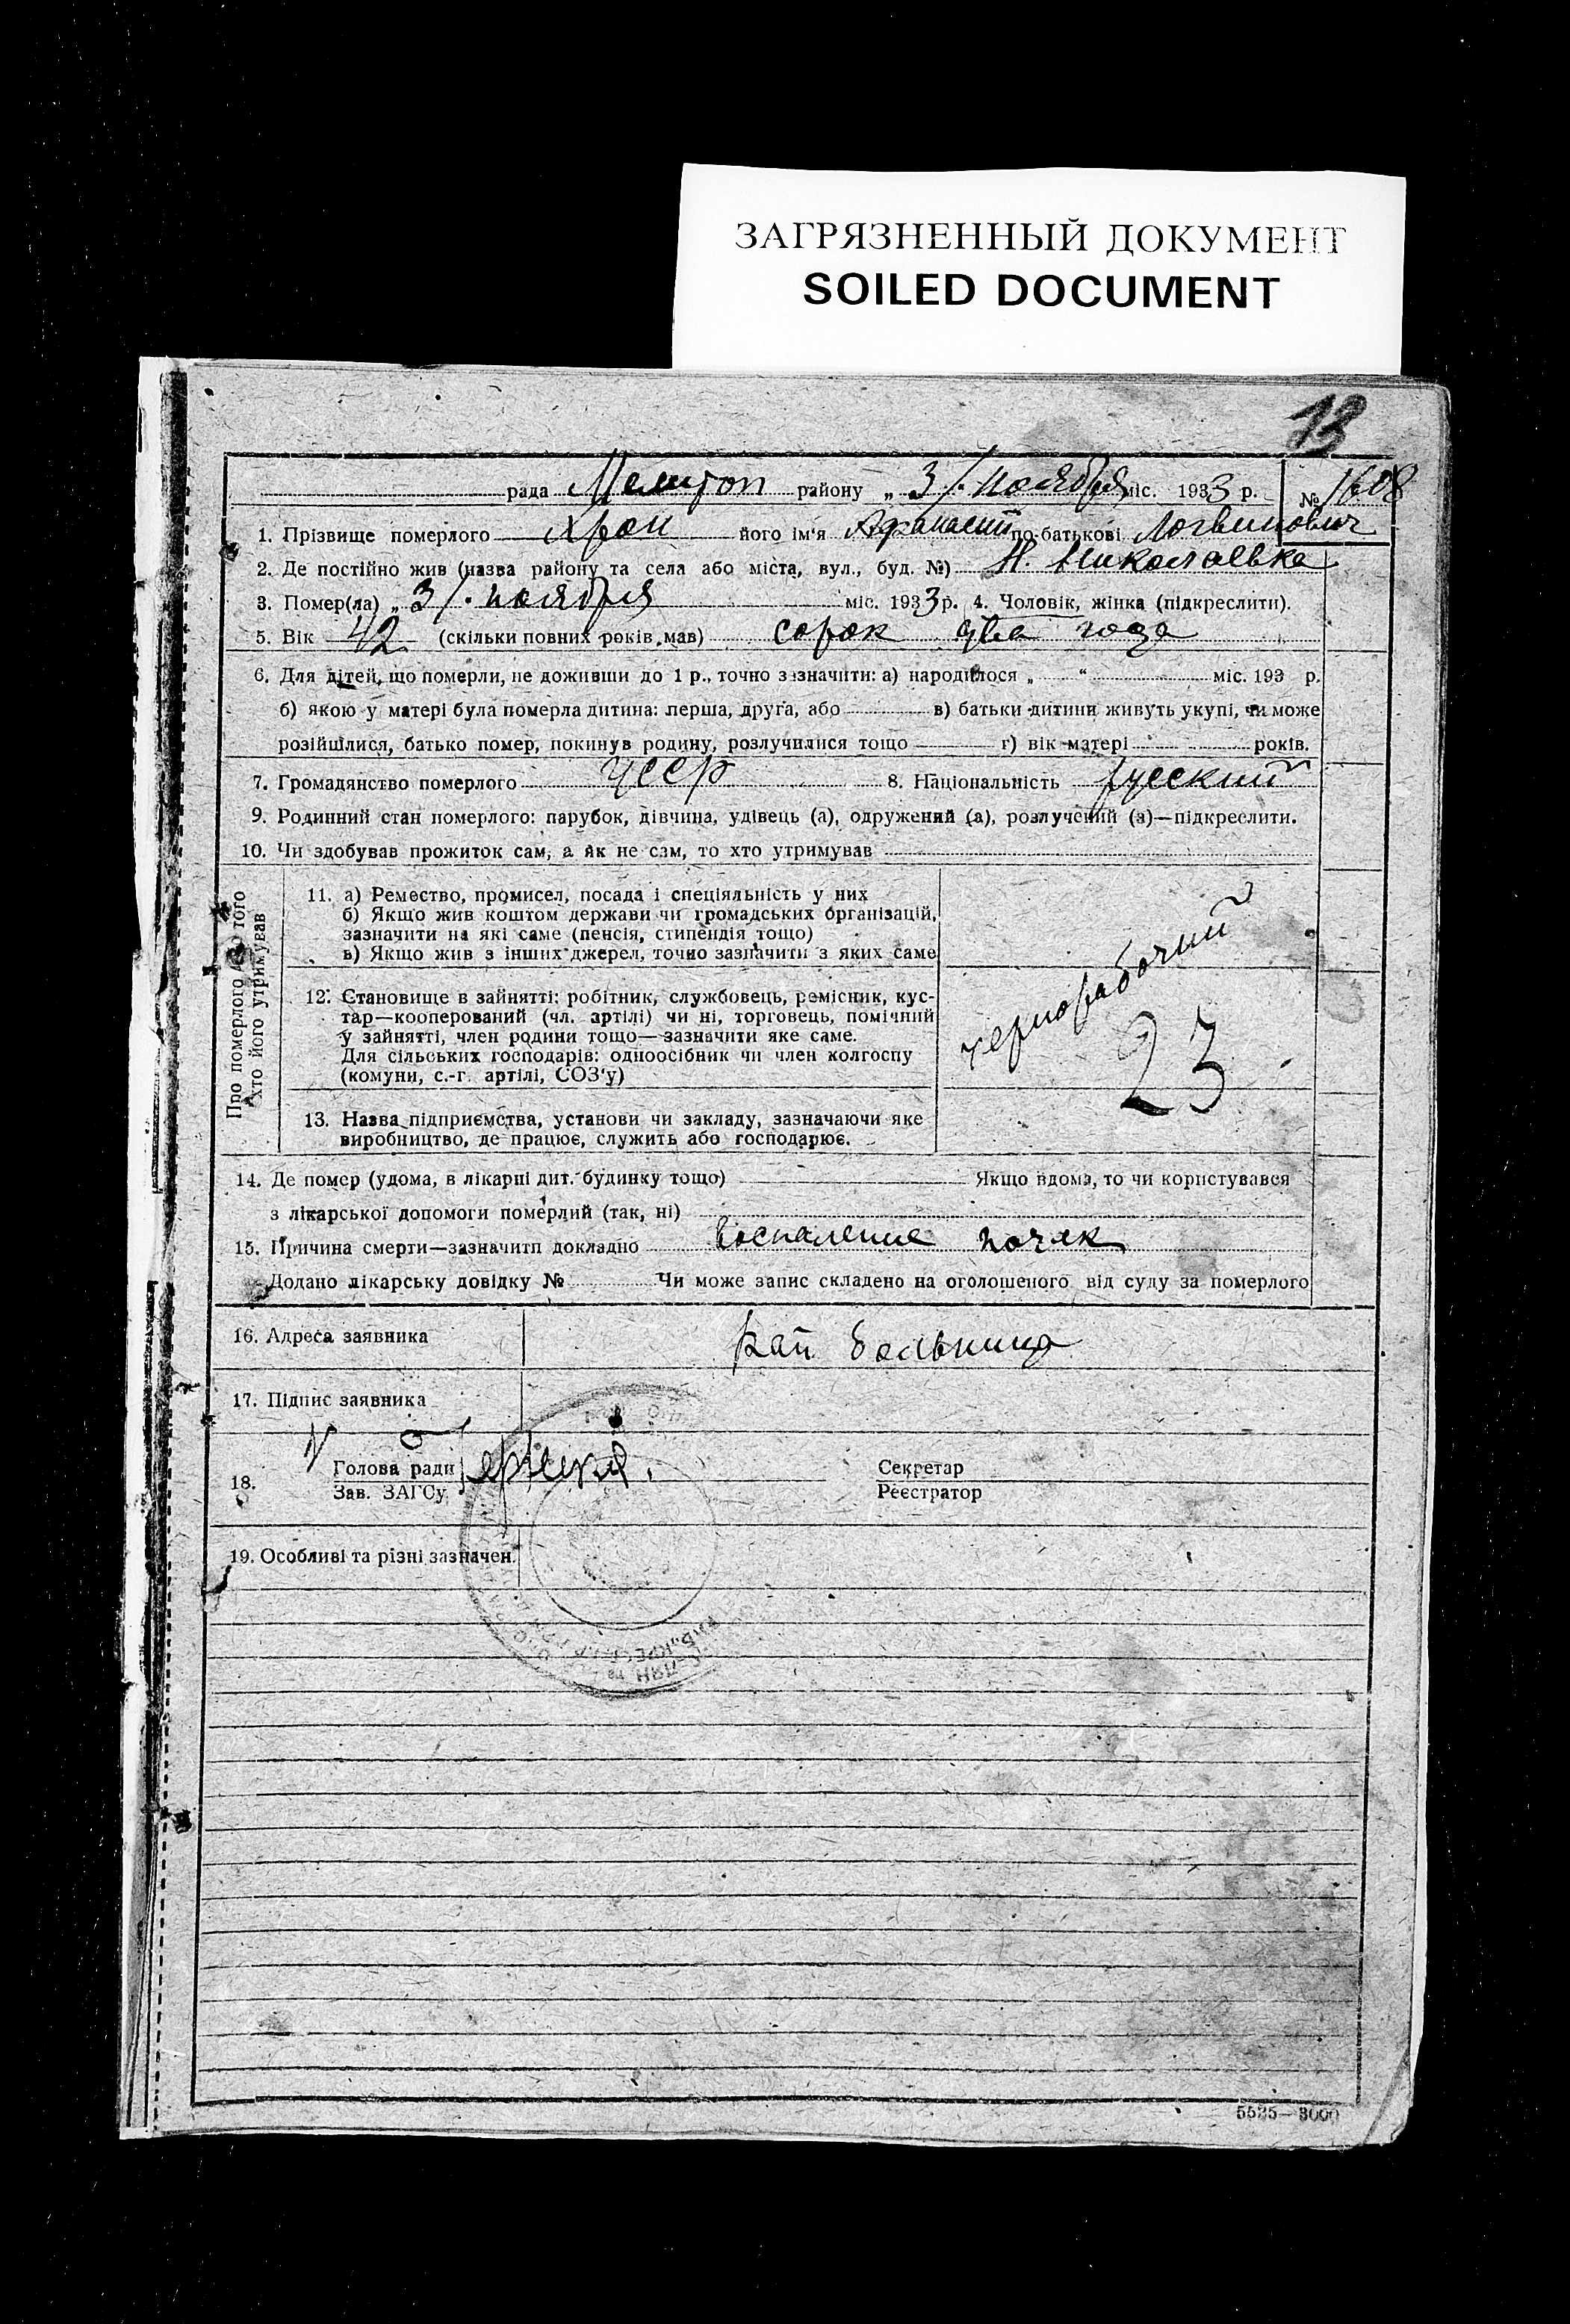 ЗАГРЯЗНЕННЫЙ ДОКУМЕНТ
SOILED DOCUMENT
13
рада Мелитоп району „ 3/. ноября міс. 1933 р. № 1608
1. Прізвище померлого Хрон його ім'я Афанасий по-батькові Логвинович
2. Де постійно жив (назва району та села або міста, вул., буд. №) Н. Николаевка
3. Помер(ла) „ 3/. ноября міс. 1933 р. 4. Чоловік, жінка (підкреслити).
5. Вік 42 (скільки повних років мав) сорок два года
6. Для дітей, що померли, не доживши до 1 р., точно зазначити: а) народилося „ “ міс. 193 р.
б) якою у матері була померла дитина: перша, друга, або в) батьки дитини живуть укупі, чи може
розійшлися, батько помер, покинув родину, розлучилися тощо г) вік матері років.
7. Громадянство померлого УССР 8. Національність русский
9. Родинний стан померлого: парубок, дівчина, удівець (а), одружений (а), розлучений (а)—підкреслити.
10. Чи здобував прожиток сам, а як не сам, то хто утримував
Про померлого або того
хто його утримував
11. а) Ремество, промисел, посада і спеціяльність у них
б) Якщо жив коштом держави чи громадських організацій,
зазначити на які саме (пенсія, стипендія тощо)
в) Якщо жив з інших джерел, точно зазначити з яких саме
чернорабочий
12. Становище в зайнятті: робітник, службовець, ремісник, кус-
тар—кооперований (чл. артілі) чи ні, торговець, помічний
у зайнятті, член родини тощо—зазначити яке саме.
Для сільських господарів: одноосібник чи член колгоспу
(комуни, с.-г. артілі, СОЗ'у)
23
13. Назва підприємства, установи чи закладу, зазначаючи яке
виробництво, де працює, служить або господарює.
14. Де помер (удома, в лікарні дит. будинку тощо) Якщо вдома, то чи користувався
з лікарської допомоги померлий (так, ні)
15. Причина смерти—зазначити докладно Воспаление почек
Додано лікарську довідку № Чи може запис складено на оголошеного від суду за померлого
16. Адреса заявника Рай больница
17. Підпис заявника
18. Голова ради Секретар
Зав. ЗАГСу Реєстратор
19. Особливі та різні зазначен.
5535—3000